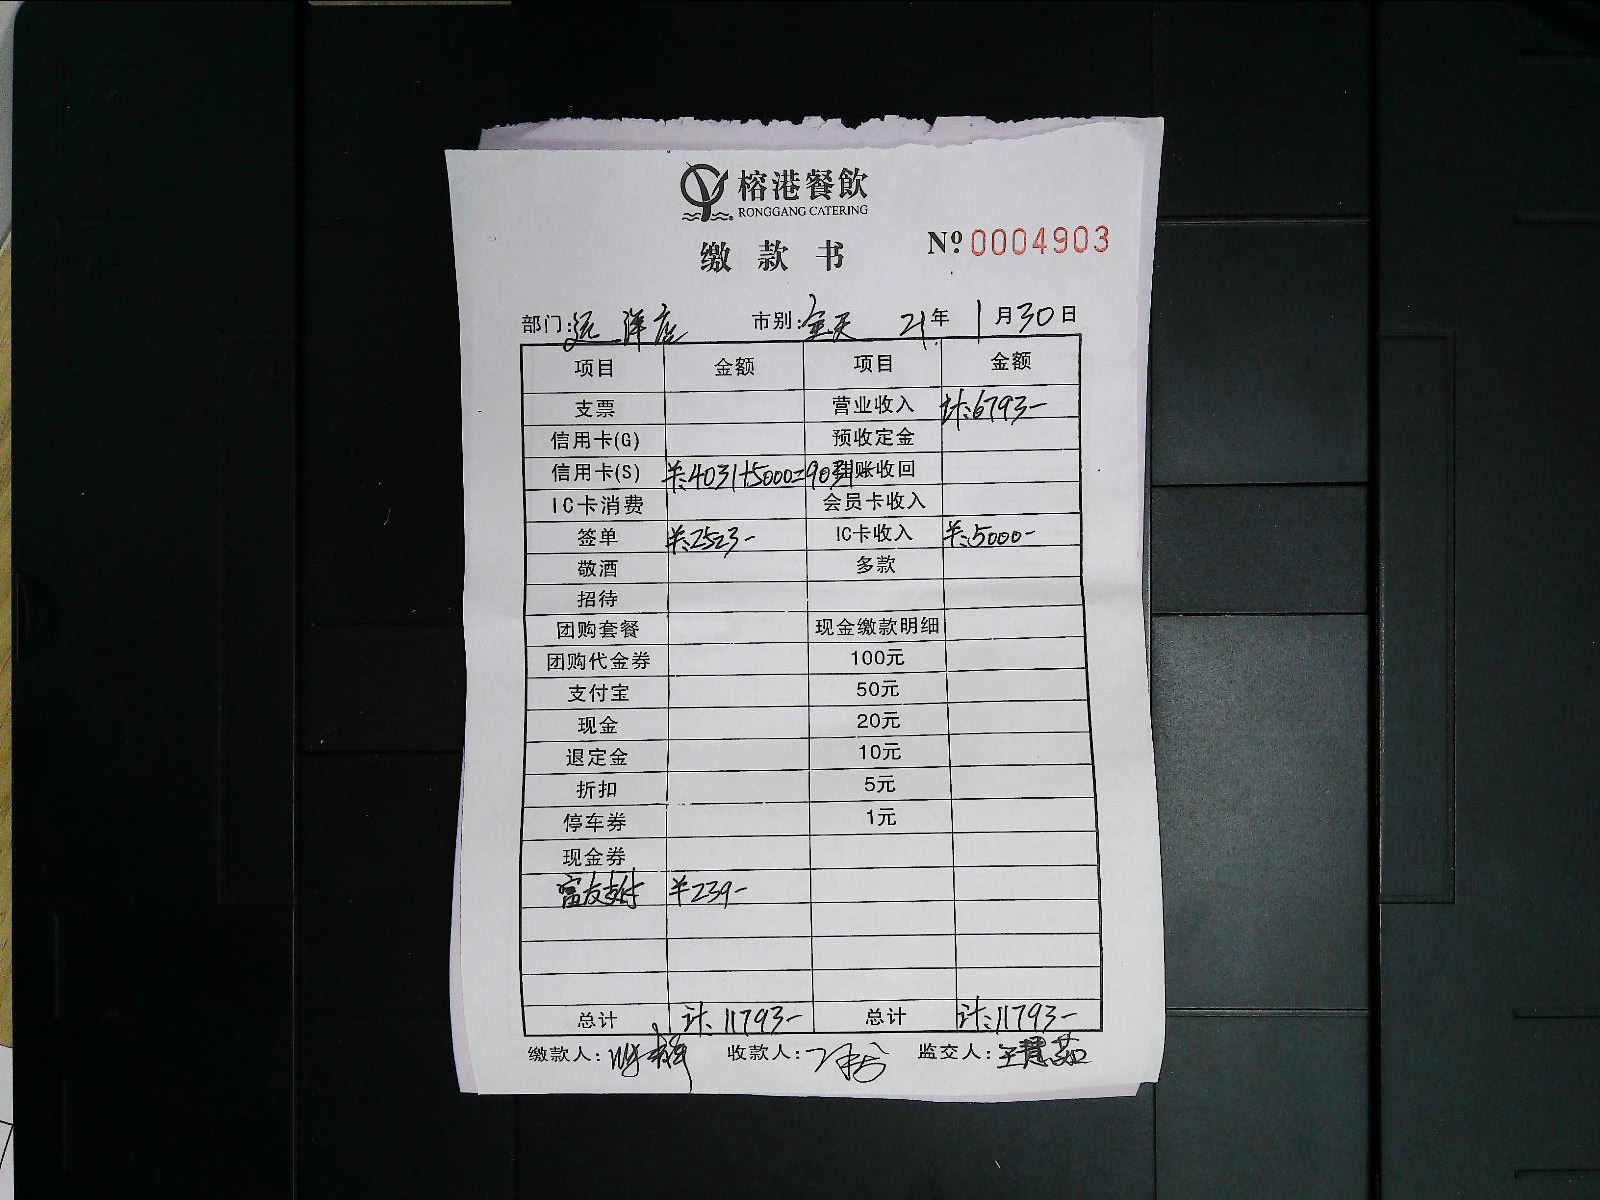 榕港餐飲
RONGGANG CATERING
缴款书 Nº 0004903
部门:远洋店 市别:全天 21年1月30日
项目 金额 项目 金额
支票 营业收入 计:6793-
信用卡(G) 预收定金
信用卡(S) ¥:4031+5000=9031 账收回
IC卡消费 会员卡收入
签单 ¥:2523- IC卡收入 ¥:5000-
敬酒 多款
招待
团购套餐 现金缴款明细
团购代金券 100元
支付宝 50元
现金 20元
退定金 10元
折扣 5元
停车券 1元
现金券
富友支付 ¥239-
总计 计:11793- 总计 计:11793-
缴款人: 收款人: 监交人:王慧茹